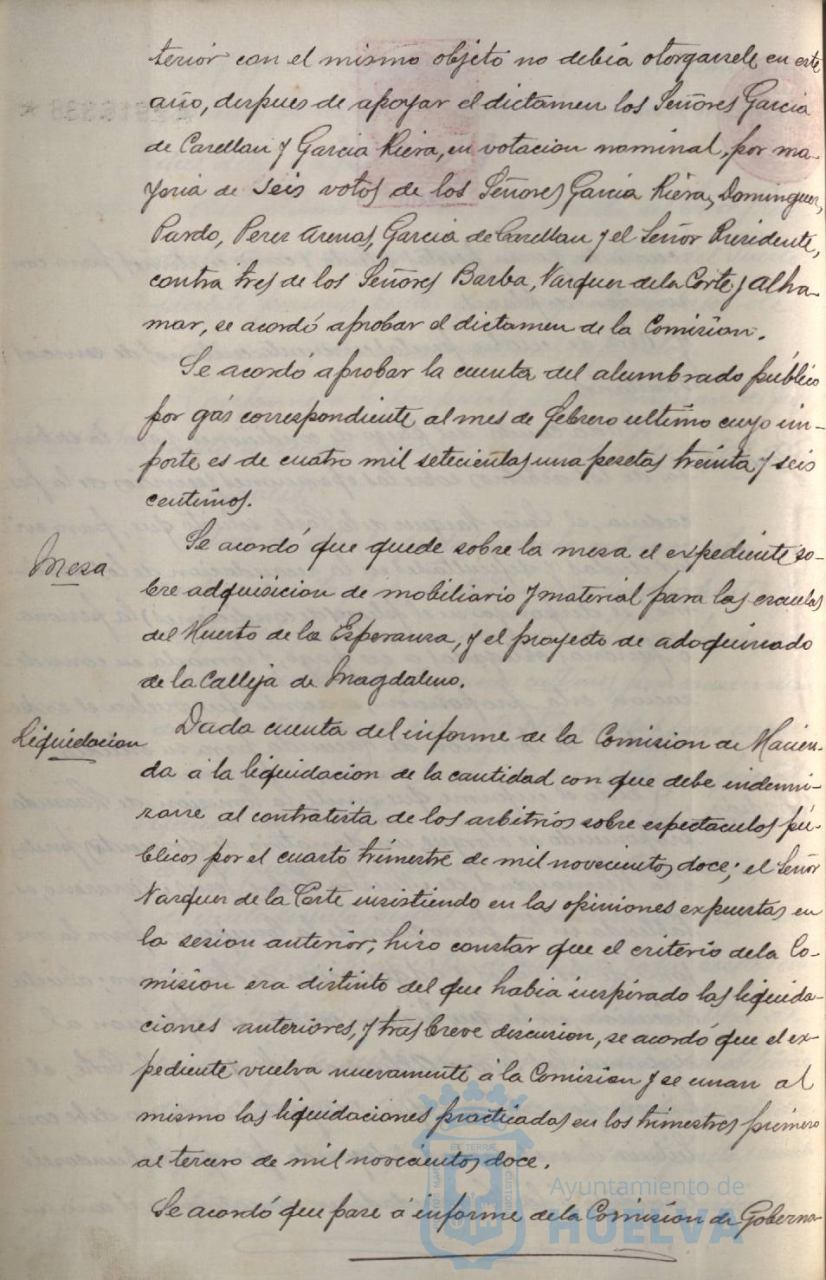 terior con el mismo objeto no debia otorgarsele en este
año, despues de apoyar el dictamen los Señores Garcia
de Castellan y Garcia Riera, en votacion nominal, por ma-
yoria de seis votos de los Señores Garcia Riera, Dominguez,
Pardo, Perez Arenas, Garcia de Castellan y el Señor Presidente,
contra tres de los Señores Barba, Vazquez de la Corte y Alha-
mar, se acordó aprobar el dictamen de la Comision.
Se acordó aprobar la cuenta del alumbrado público
por gas correspondiente al mes de Febrero ultimo cuyo im-
porte es de cuatro mil setecientas una pesetas treinta y seis
centimos.
Mesa
Se acordó que quede sobre la mesa el expediente so-
bre adquisicion de mobiliario y material para las escuelas
del Huerto de la Esperanza, y el proyecto de adoquinado
de la Calleja de Magdaleno.
Liquidacion
Dada cuenta del informe de la Comision de Hacien-
da á la liquidacion de la cantidad con que debe indemni-
zarse al contratista de los arbitrios sobre espectaculos pú-
blicos por el cuarto trimestre de mil novecientos doce; el Señor
Vazquez de la Corte insistiendo en las opiniones expuestas en
la sesion anterior, hizo constar que el criterio de la Co-
mision era distinto del que habia inspirado las liquida-
ciones anteriores, y tras breve discusion, se acordó que el ex-
pediente vuelva nuevamente á la Comision y se unan al
mismo las liquidaciones practicadas en los trimestres primero
al tercero de mil novecientos doce.
Se acordó que pase á informe de la Comision de Goberna-
Ayuntamiento de
HUELVA